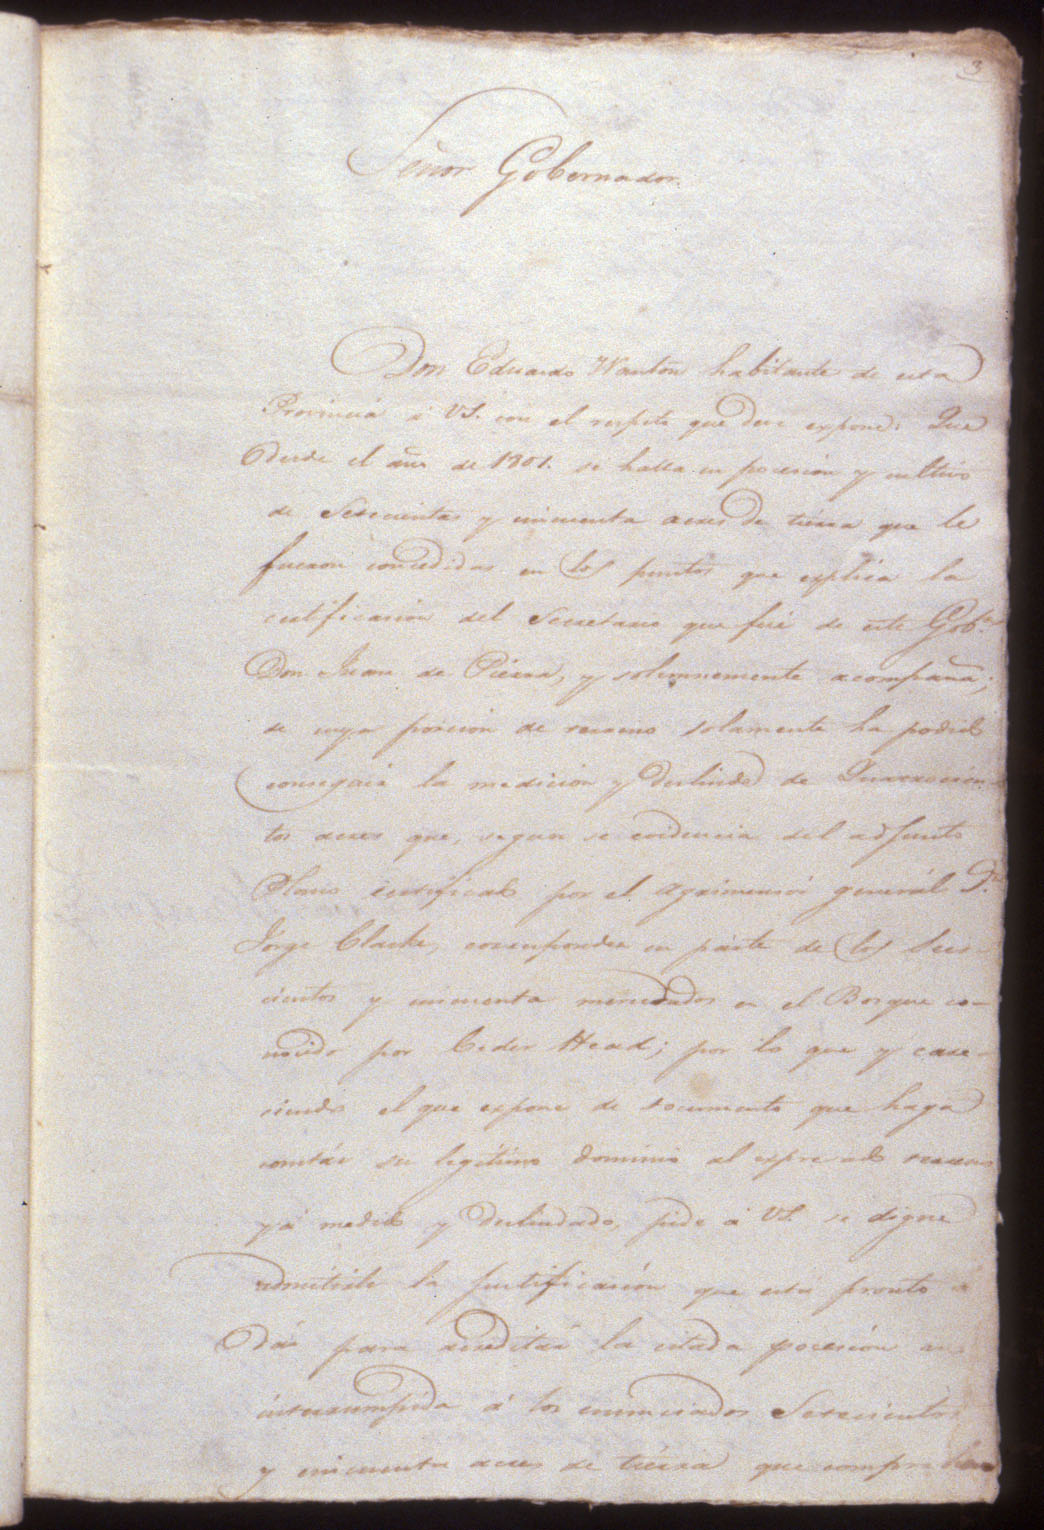 3
Señor Gobernador.
Don Eduardo Wanton habitante de esta
Provincia á VS. con el respeto que deve expone: Que
desde el año de 1801. se halla en pocesión y cultivo
de Setecientos y cincuenta acres de tiérra que le
fueron concedidas en los puntos que explica la
certificasión del Secretario que fué de este Gobno.
Don Juan de Piérra, y solemnemente acompaña;
de cuya porcion de terreno solamente ha podido
conseguir la medición y deslinde de Quatrocien-
tos acres que, segun se evidencia del adjunto
Plano certificado por el Agrimensór generál Dn.
Jorge Clarke, corresponden en párte de los Sete-
cientos y cincuenta mercedados en el Bosque co-
nocido por Ceder Head; por lo que y care-
ciendo el que expone de documento que haga
constár su legítimo dominio al expresado terreno
yá medido y deslindado, pide á VS. se digne
admitirle la justificasión que está pronto á
dár para acreditár la citada pocesión
interrumpida á los enunciados Setecientos
y cincuenta acres de tiérra que comprehen